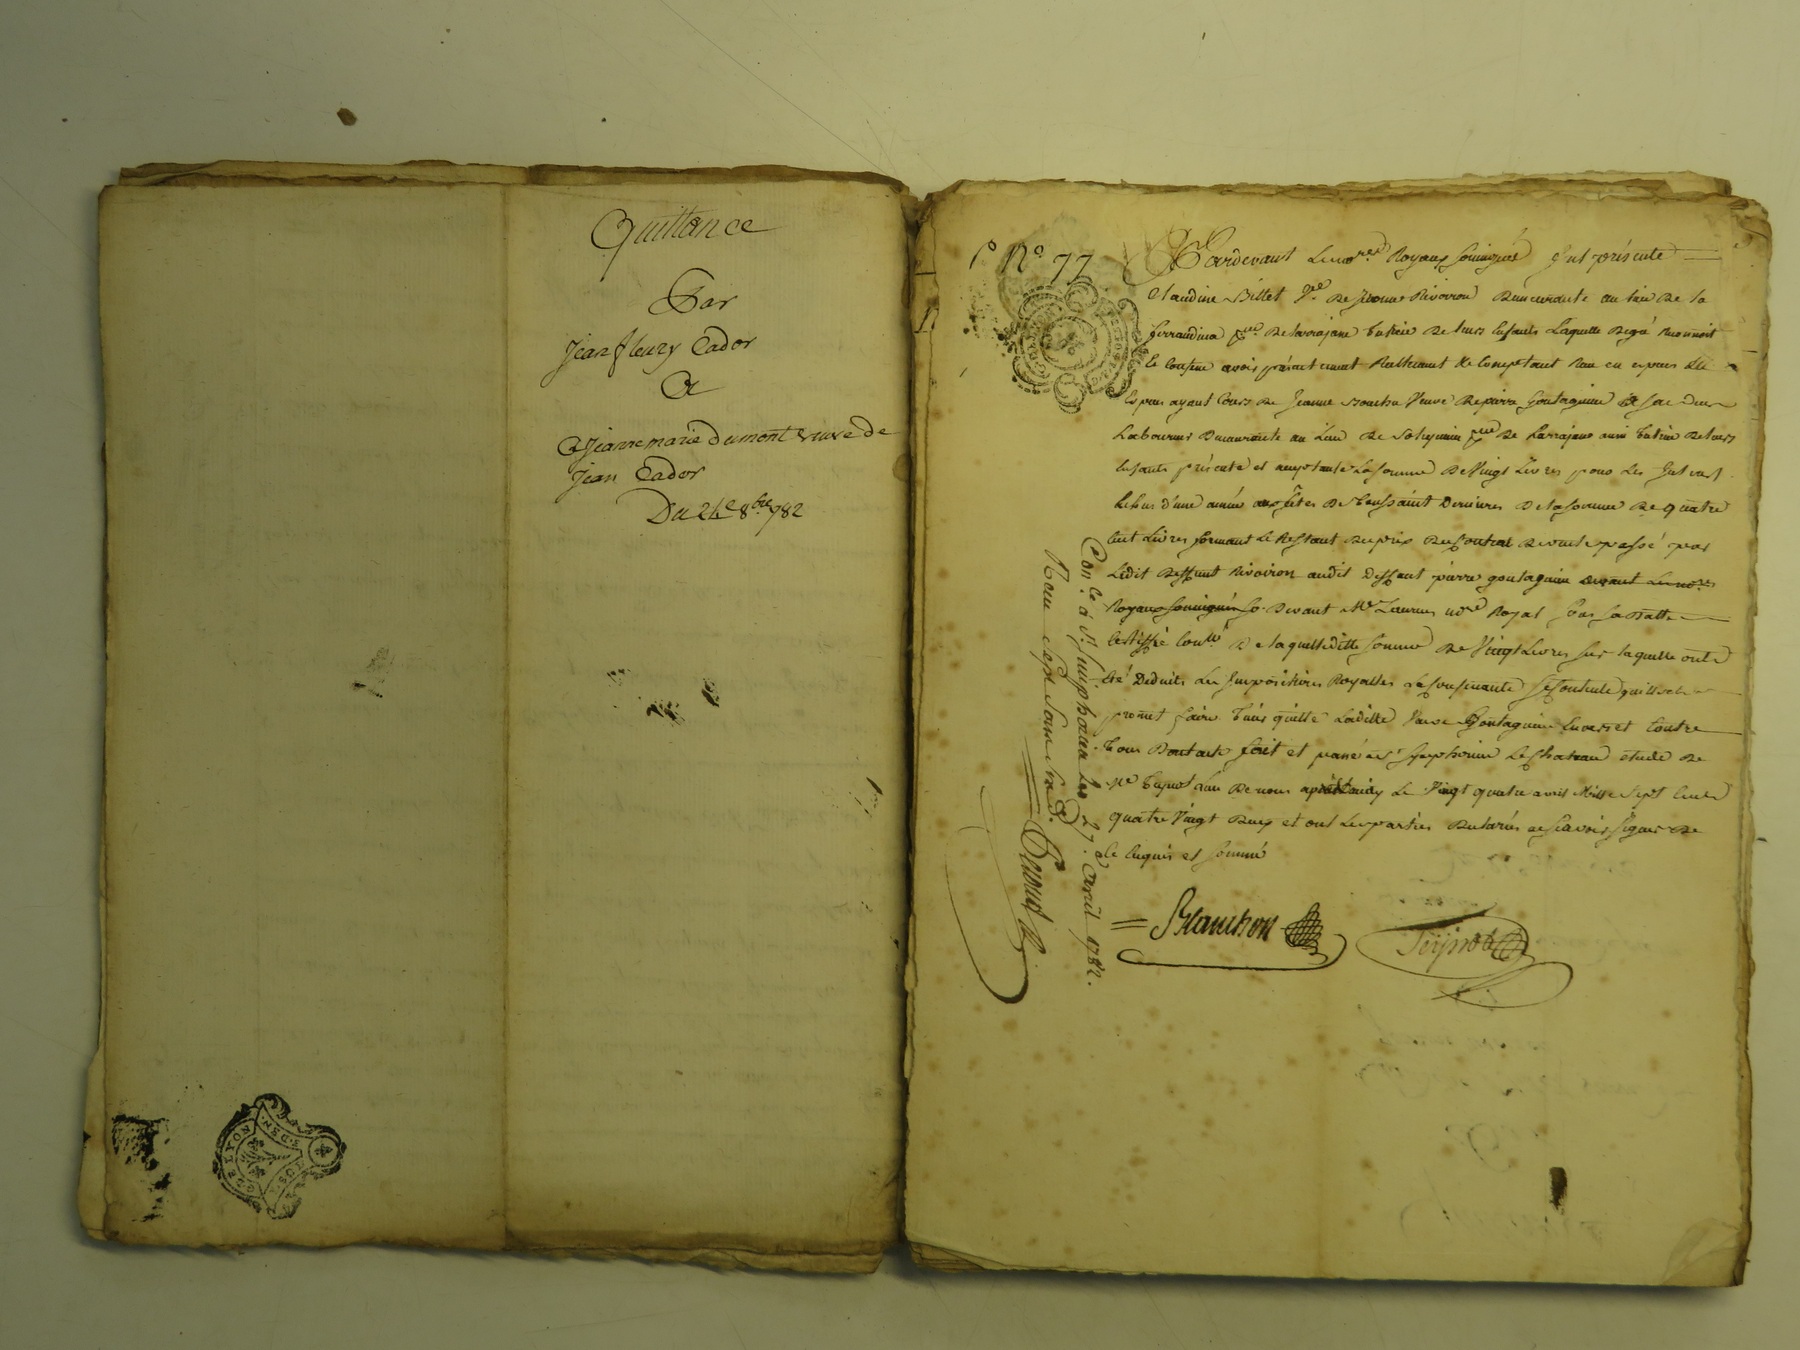 Quittance
Par
Jean fleury Cador
A
Jeanne marie dumont veuve de
Jean Cador
Du 24e 8bre 1782
GEN DE LYON
No 77
Pardevant Les nores Royaux soussignés fut présente
Claudine Billet Vve de Rivoiron Demeurante au lieu De la
psse De Larajasse tutrice De leurs Enfants Laquelle De gré
Et confesse avoir présentement Réellement et comptant
Espèces ayant Cours De Jeanne Veuve De pierre Goutagnieu
Laboureur Demeurante au Lieu De psse De Larajasse aussi tutrice De leurs
Enfants présente et acceptante La somme De Vingt Livres pour Les Interest
Echus d'une année aux fêtes De toussaint Dernieres De la somme De quatre
Cent Livres formant Le Restant Du prix Du Contrat De vente passé par
Ledit Deffunt Rivoiron audit Deffunt pierre goutagnieu Devant Les nores
Royaux soussignés Devant Me nore Royal sous sa Datte
De laquelle ditte somme De Vingt Livres sur laquelle ont
Eté Deduits Les Impositions Royalles
promet faire tenir quitte Laditte Veuve Goutagnieu Envers et Contre
tous Dont acte fait et passé à St Symphorien Le Chateau etude De
Me Lun De nous Le Vingt quatre avril Mille Sept Cents
quatre Vingt Deux et ont Les parties Declarées ne Scavoir Signer De
Ce Enquis et sommé
Blanchon
Con.lé à St Simphorien le 27. Avril 1782.